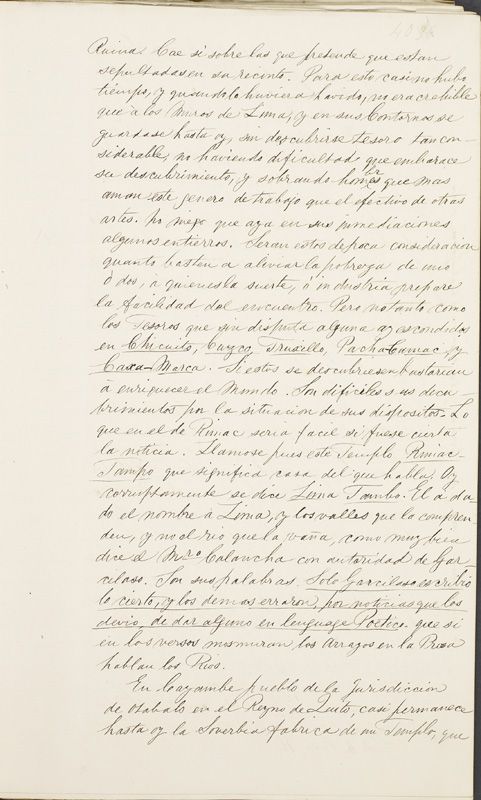 409
Ruina. Cae si sobre las que pretende que estan
sepultadas en su recinto. Para esto casi no hubo
tiempo, y quando lo huviera havido, no era creible
que à los Muros de Lima, y en sus Contornos se
guardase hasta oy, sin descubrirse tesoro tan con-
siderable, no haviendo dificultad que embarace
su descubrimiento, y sobrando hombres que mas
aman este jenero de trabajo que el efectivo de otras
artes. No niego que aya en sus inmediaciones
algunos entierros. Seran estos de poca consideracion
quanto basten a aliviar la pobreza de uno
ò dos, a quienes la suerte, ò industria prepare
la facilidad del encuentro. Pero no tanto como
los Tesoros que sin disputa alguna ay escondidos
en Chicuito, Cuzco, Truxillo, Pacha-Camac, y
Caxa-Marca. Si estos se descubriesen bastarian
à enriquecer el Mundo. Son dificiles sus descu-
brimientos por la situacion de sus dispositos. Lo
que en el de Rimac seria facil si fuese cierta
la noticia. Llamose pues este Templo Rimac-
Tampo que significa casa del que habla. Oy
corruptamente se dice Lima Tambo. El à da-
do el nombre à Lima, y los valles que la compren-
den, y no el rio que la vaña, como muy bien
dice el Mro Calancha con autoridad de Gar-
cilaso. Son sus palabras. Solo Garcilaso escribio
lo cierto, y los demas erraron, por noticias que los
devio, de dar alguno en lenguage Poetico. que si
en los versos murmuran los Arroyos en la Prosa
hablan los Rios.
En Cayambe pueblo de la Jurisdiccion
de Otabalo en el Reyno de Quito, casi permanece
hasta oy la Soverbia fabrica de un Templo, que